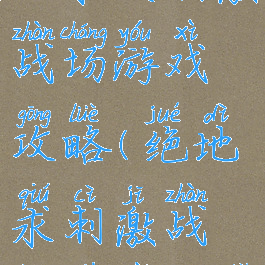 zhàn chǎng yóu xì
战场游戏
gōng lüè jué dì
攻略(绝地
qiú cì jī zhàn
求刺激战